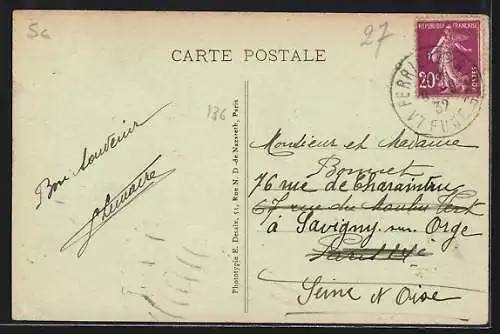 5c
27
CARTE POSTALE
REPUBLIQUE FRANÇAISE
20c
POSTES
FERRI
32
136
Bon Souvenir
Lemaire
Phototypie E. Desaix, 51, Rue N. D. de Nazareth, Paris
Monsieur et Madame
Bonnet
76 rue de Charaintru
67 rue du Moulin Vert
à Savigny sur Orge
Paris 14e
Seine et Oise